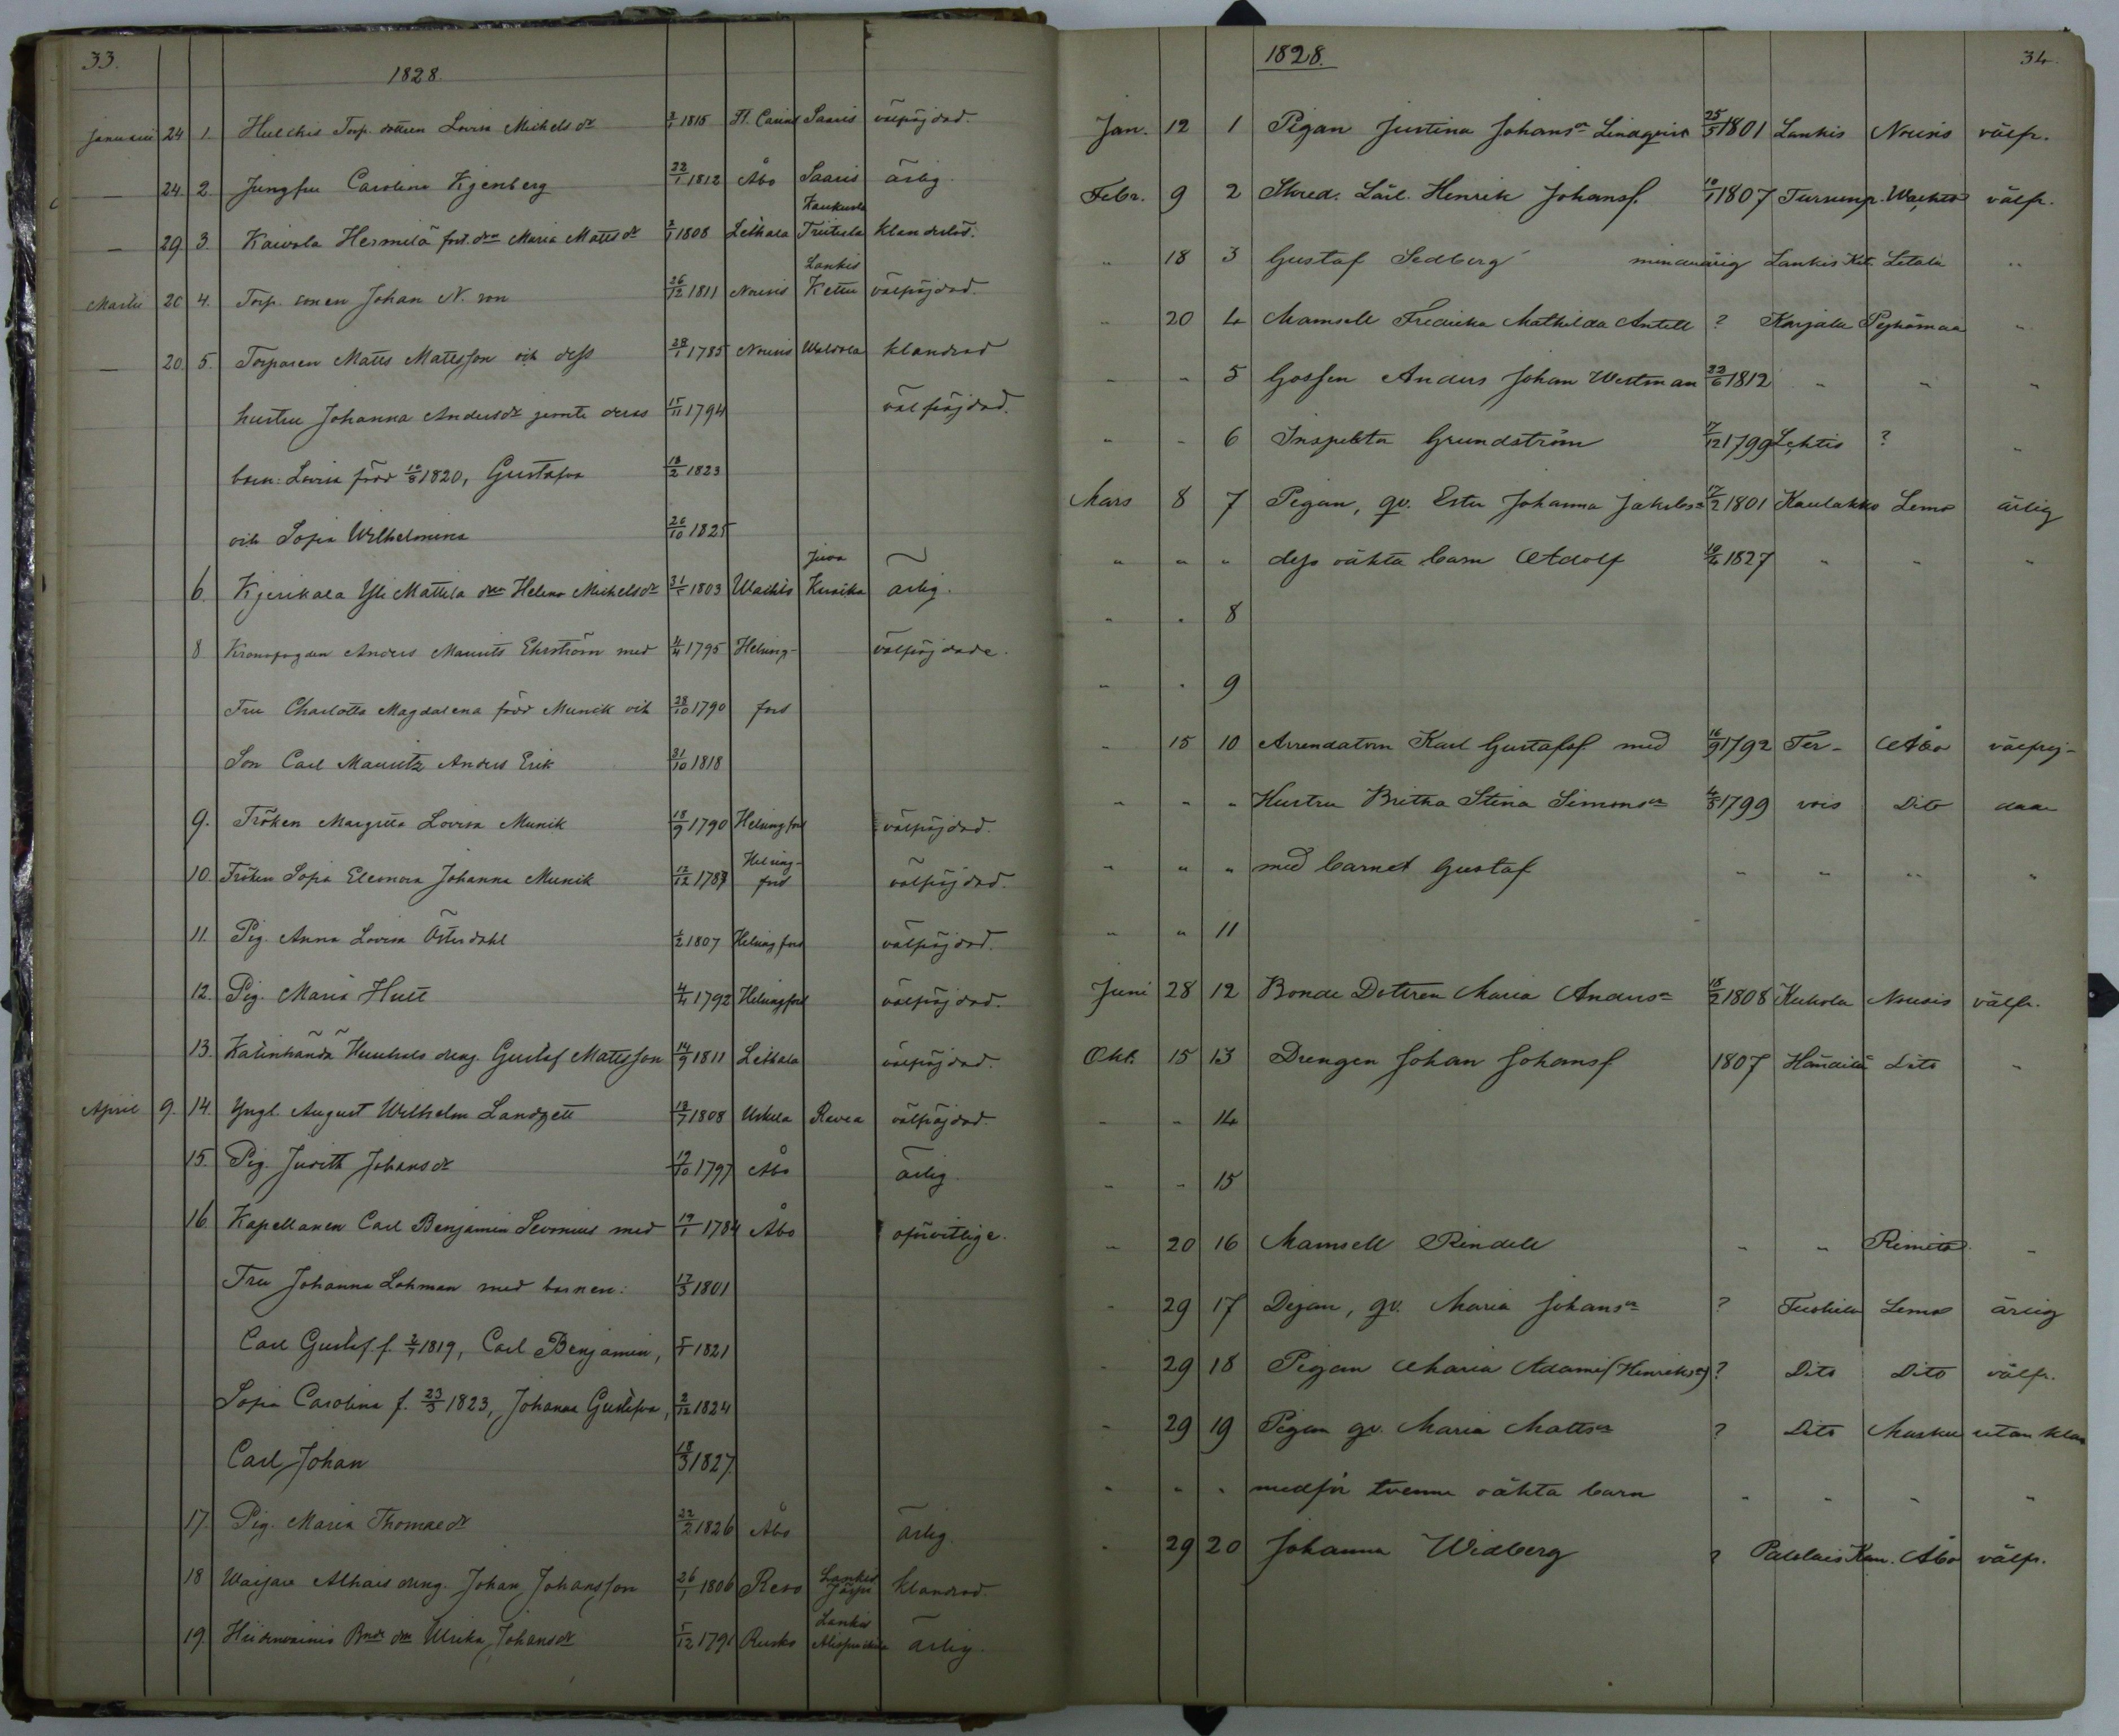 33.
1828.
Januari 24 1. Huldkis Torp. dottren Lovisa Michelsdr 3/1 1815 St. Carins Saaris välfräjdad.
— 24. 2. Jungfru Carolina Kjenberg 22/1 1812 Åbo Saaris ärlig
— 29 3. Kaivola Hermilä fört. drn Maria Mattsdr 3/1 1808 Letkala Kaukurla Triitula klanderlös.
Martii 20 4. Torp. sonen Johan N. son 26/12 1811 Nousis Lankis Kettu välfräjdad.
— 20. 5. Torparen Matts Mattsson och dess 28/1 1785 Nousis Waldola klandrad
hustru Johanna Andersdr jemte deras 15/11 1794 välfräjdad.
barn: Lovisa född 10/8 1820, Gustafva 13/2 1823
och Sofia Wilhelmina 26/10 1825
6. Kjerikala Yli Mattila drn Helena Michelsdr 31/1 1803 Wachto Juva Kusika ärlig.
8 Kronofogden Anders Maurits Ehrström med 4/4 1795 Helsing- välfräjdade.
Fru Charlotta Magdalena född Munck och 28/10 1790 fors
Son Carl Mauritz Anders Erik 31/10 1818
9. Fröken Margreta Lovisa Munik 18/9 1790 Helsingfors välfräjdad.
10. Fröken Sofia Eleonora Johanna Munik 12/12 1787 Helsing-fors välfräjdad.
11. Pig. Anna Lovisa Österdahl 1/2 1807 Helsingfors välfräjdad.
12. Pig. Maria Hult 4/4 1792 Helsingfors välfräjdad.
13. Kalinhändä Huuhals dreng. Gustaf Mattsson 14/9 1811 Letkala välfräjdad.
April 9. 14. Yngl. August Wilhelm Landzett 13/7 1808 Uskela Revea välfräjdad.
15. Pig. Judith Johansdr 19/10 1797 Åbo ärlig.
16. Kapellanen Carl Benjamin Levonius med 19/1 1784 Åbo oförvitlige.
Fru Johanna Lohman med barnen: 17/3 1801
Carl Gustaf f. 2/7 1819, Carl Benjamin, 5/5 1821
Sofia Carolina f. 23/3 1823, Johanna Gustafva, 2/12 1824
Carl Johan 18/3 1827.
17. Pig. Maria Thomaedr 22/2 1826 Åbo ärlig
18 Warjare Alhais dreng. Johan Johansson 26/1 1806 Reso Lankis Järpi klandrad.
19. Heidenvainio Bnde drn Ulrika Johansdr 5/12 1791 Rusko Lankis ärlig
1828. 34.
Jan. 12 1 Pigan Justina Johansdr Lindqvist 25/5 1801 Lankis Nousis välfr.
Febr. 9 2 Skred. Lärl. Henrik Johanss. 10/1 1807 Tursunp. Wachto välfr.
" 18 3 Gustaf Sedberg minderårig Lankis Ket. Letala "
" 20 4 Mamsell Fredrika Mathilda Antell ? Karjala Pojhämaa "
" " 5 Gossen Anders Johan Westman 22/6 1812 " " "
" " 6 Inspektor Grundström 7/12 1799 Lehtis ? "
Mars 8 7 Pigan, qv. Ester Johanna Jakobsdr 17/2 1801 Kaulakko Lemo ärlig
" " " dess oäkta barn Adolf 10/6 1827 " " "
" " 8
" " 9
" 15 10 Arrendatorn Karl Gustafss. med 16/9 1792 Ter- Åbo välfrej-
" " " Hustru Britha Stina Simonsdr 4/5 1799 vois Dito dade
" " " med barnet Gustaf " " " "
" " 11
Juni 28 12 Bonde Dottren Maria Andersdr 15/2 1808 Kukola Nousis välfr.
Okt. 15 13 Drengen Johan Johanss. 1807 Händilä Dito "
" " 14
" " 15
" 20 16 Mamsell Rindell " " Rimito "
" 29 17 Pigan, qv. Maria Johansdr ? Tuskila Lemo ärlig
" 29 18 Pigan Maria Adami (Henriksdr) ? Dito Dito välfr.
" 29 19 Pigan qv. Maria Mattsdr ? Dito Masku utan klan
" " " medför tvenne oäkta barn " " " "
" 29 20 Johanna Widberg ? Palolais Kan. Åbo välfr.